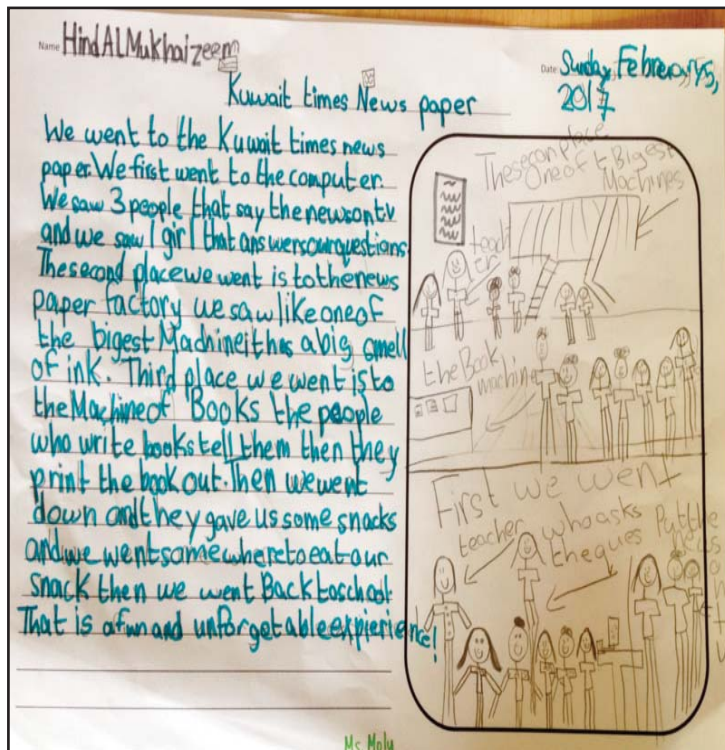 Name HindALMukhaizeem
Date Sunday, Februrary5,
2017
Kuwait times News paper
We went to the Kuwait times news
paper. We first went to the computer.
We saw 3 people that say the news on tv
and we saw 1 girl that answers our questions.
The second place we went is to the news
paper factory we saw like one of
the bigest Machine it has a big smell
of ink. Third place we went is to
the Machine of Books the people
who write books tell them then they
print the book out. Then we went
down and they gave us some snacks
and we went somewhere to eat our
snack then we went Back to school.
That is a fun and unforgetable expierience!
The secon place
One of t Bigest
Machines
teach
er
the Book
machine
First we went
teacher
who asks
the ques
Put the
Ms. Moly